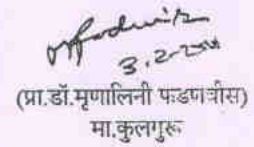 3.2-2020
(प्रा.डॉ.मृणालिनी फडणवीस)
मा.कुलगुरू